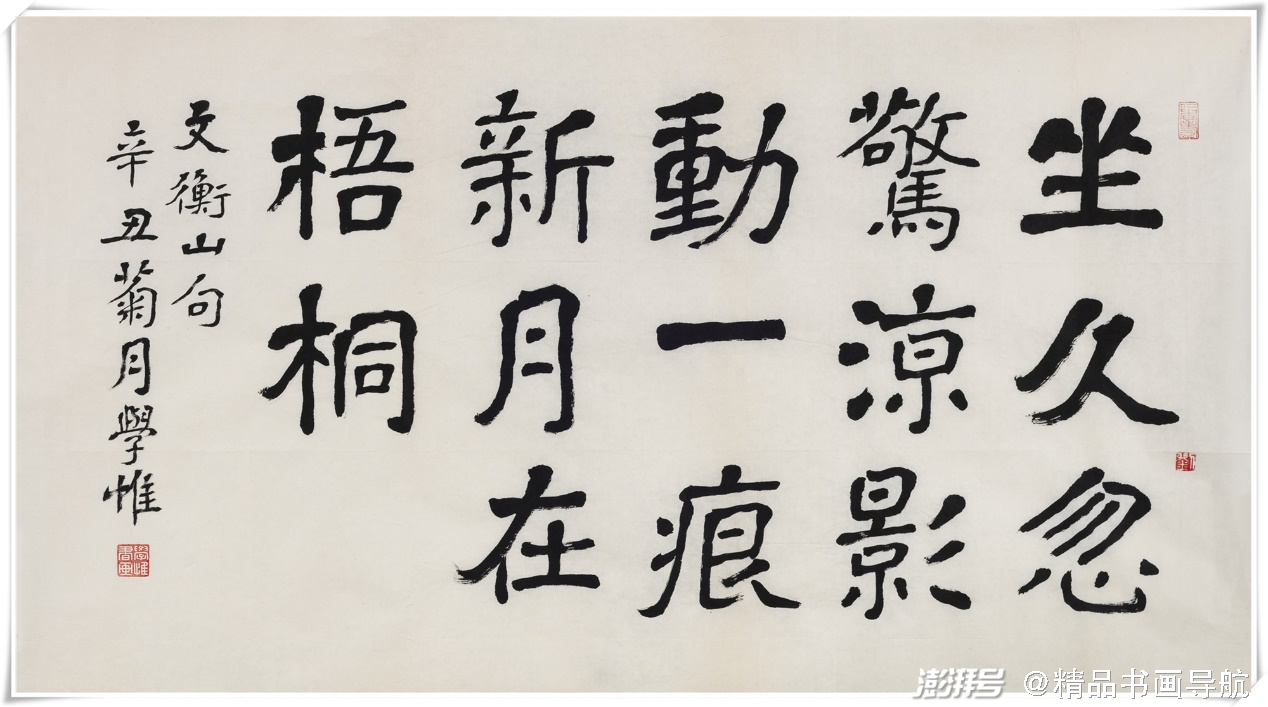 坐久忽
驚涼影
動一痕
新月在
梧桐
文衡山句
辛丑菊月學惟
學惟書畫
澎湃号 @精品书画导航